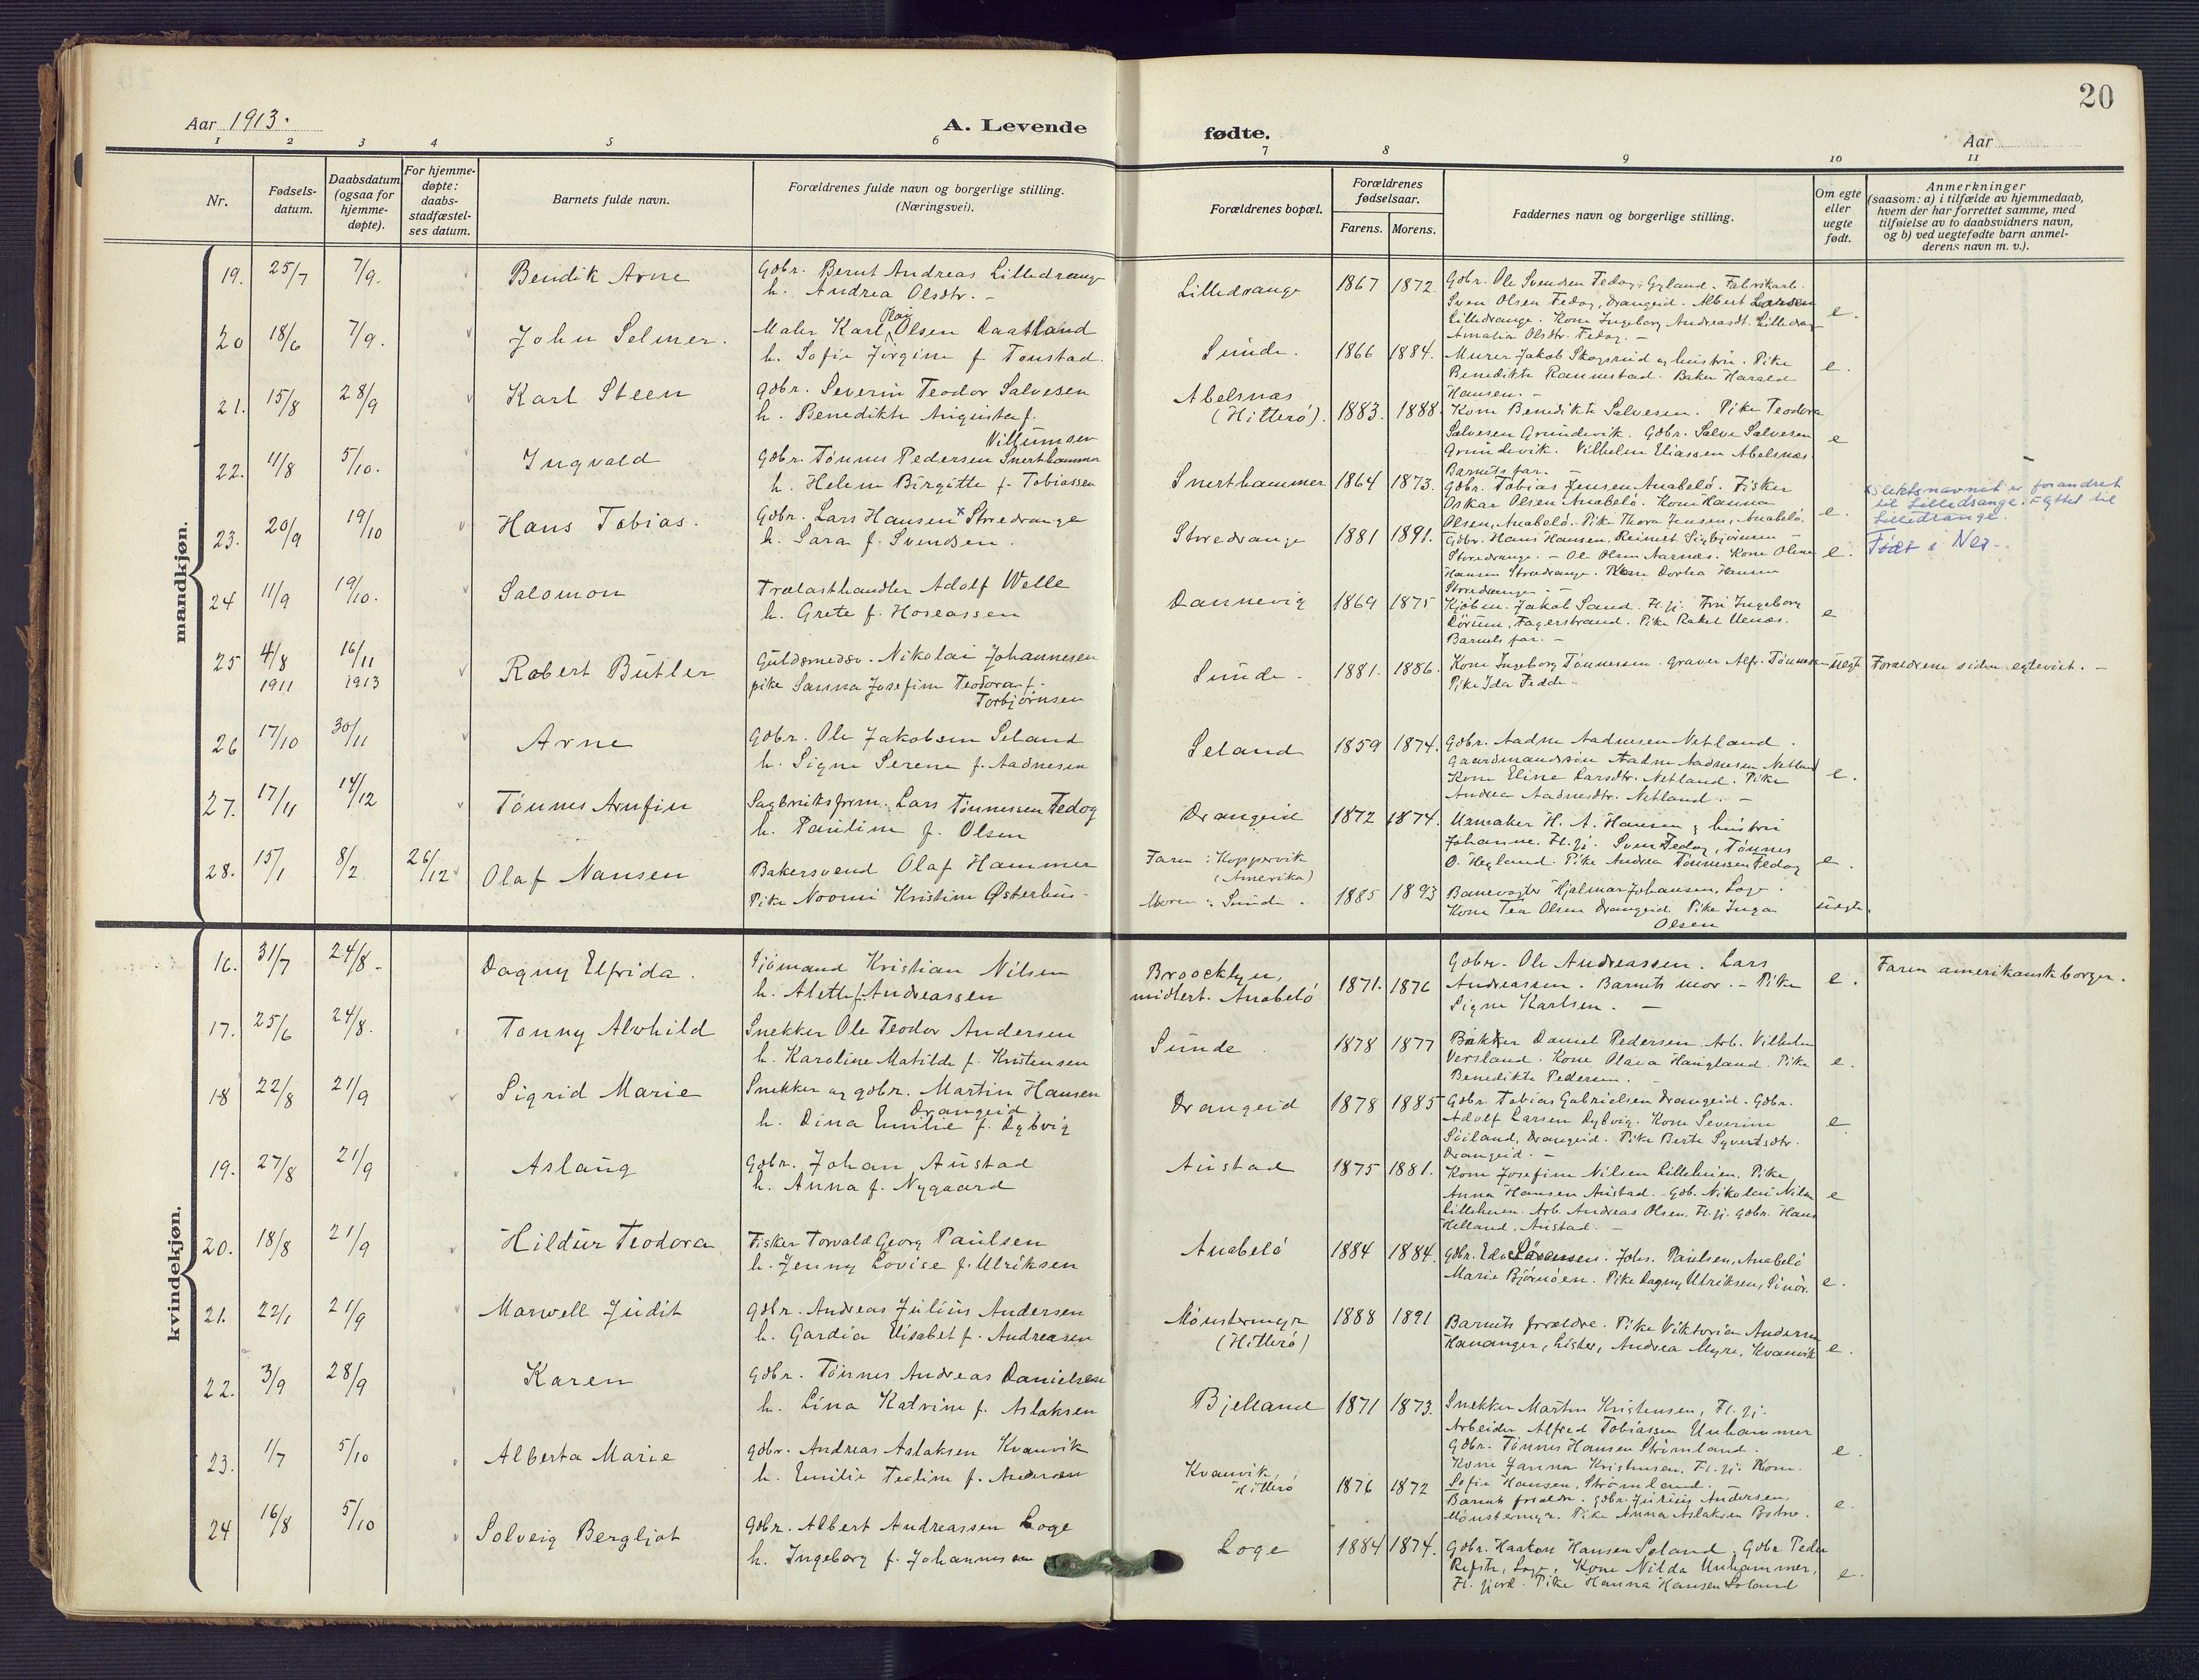 20
Aar 1913.
A. Levende
fødte.
Aar
1
2
3
4
5
6
7
8
9
10
11
Nr.
Fødsels-
datum.
Daabsdatum
(ogsaa for
hjemme-
døpte).
For hjemme-
døpte:
daabs-
stadfæstel-
ses datum.
Barnets fulde navn.
Forældrenes fulde navn og borgerlige stilling.
(Næringsvei).
Forældrenes bopæl.
Forældrenes
fødselsaar.
Farens.
Morens.
Faddernes navn og borgerlige stilling.
Om egte
eller
uegte
født.
Anmerkninger
(saasom: a) i tilfælde av hjemmedaab,
hvem der har forrettet samme, med
tilføielse av to daabsvidners navn,
og b) ved uegtefødte barn anmel-
derens navn m. v.).
mandkjøn.
19. 25/7 7/9. Bendik Arne
Gdbr. Bernt Andreas Lilledrange
h. Andrea Olsdtr. -
Lilledrange 1867 1872.
Gdbr. Ole Svendsen Fedog, Gyland. Fabrikarb.
Sven Olsen Fedog, Drangeid. Albert Larsen
Lilledrange. Kone Ingeborg Andreasdt. Lilledrange
Amalia Olsdtr. Fedog. -
e.
20 18/6 7/9. John Selmer.
Maler Karl Olai Olsen Daatland
h. Sofie Jörgine f. Tonstad.
Sunde. 1866 1884.
Murer Jakob Skogsrud og hustru. Pike
Benedikte Rannestad. Baker Harald
Hansen. -
e.
21. 15/8 28/9 Karl Steen
Gdbr. Severin Teodor Salvesen
h. Benedikte Augusta f.
Villumsen
Abelsnæs
(Hitterö). 1883. 1888.
Kone Benedikte Salvesen. Pike Teodora
Salvesen Grundevik. Gdbr. Salve Salvesen
Grundevik. Vilhelm Eliassen Abelsnæs.
Barnets far. -
e
22. 11/8 5/10. Ingvald
Gdbr. Tönnes Pedersen Snerthammer
h. Helene Birgitte f. Tobiassen
Snerthammer 1864 1873.
Gdbr. Tobias Jensen Anabelö. Fisker
Oskar Olsen Anabelö. Kone Hanna
Olsen, Anabelö. Pike Thora Jensen, Anabelö.
e.
23. 20/9 19/10 Hans Tobias.
Gdbr. Lars Hansen x Storedrange
h. Sara f. Svendsen.
Storedrange 1881 1891.
Gdbr. Hans Hansen, Reinert Sigbjörnsen -
Storedrange. - Ole Olsen Aarnæs. Kone Oline
Hansen Storedrange. Kone Dortea Hansen
Storedrange. -
e.
x Slektsnavnet er forandret
til Lilledrange. Flyttet til
Lilledrange.
Født i Nes.
24 11/9 19/10. Salomon
Trælasthandler Adolf Welle
h. Grete f. Hoseassen
Dannevig 1869 1875
Kjöbm. Jakob Sand. Fl.fj. Fru Ingeborg
Dörum, Fagerstrand. Pike Rakel Uenæs.
Barnets far. -
e
25 4/8 1911 16/11 1913 Robert Butler
Guldsmedsv. Nikolai Johannesen
pike Sanna Josefine Teodora f.
Torbjörnsen
Sunde. 1881. 1886.
Kone Ingeborg Tönnesen. Graver Alfr. Tönnesen
Pike Ida Fedde.
uegt.
Forældrene siden egteviet. -
26 17/10 30/11 Arne
Gdbr. Ole Jakobsen Seland
h. Signe Serene f. Aadnesen
Seland 1859 1874.
Gdbr. Aadne Aadnesen Netland.
Gaardmandssön Aadne Aadnesen Netland
Kone Eline Larsdtr. Netland. Pike
Andrea Aadnesdtr. Netland. -
e.
27. 17/11 14/12 Tönnes Arnfin
Sagbruksform. Lars Tönnessen Fedog
h. Pauline f. Olsen
Drangeid 1872 1874.
Urmaker H. A. Hansen og hustru
Johanne. Fl.fj. Sven Fedog, Tönnes
O. Hegland. Pike Andrea Tönnessen Fedog
e.
28. 15/1 8/2 26/12 Olaf Nansen
Bakersvend Olaf Hammer
Pike Noomi Kristine Østerhus.
Faren: Koppervik
(Amerika)
Moren: Sunde. 1885 1893
Banevogter Hjalmar Johansen, Loge.
Kone Tea Olsen Drangeid. Pike Inga
Olsen
uegte.
kvindekjøn.
16. 31/7 24/8. Dagny Elfrida.
Sjömand Kristian Nilsen
h. Alette f. Andreassen
Broocklyn,
midlert. Anabelö 1871. 1876
Gdbr. Ole Andreassen. Lars
Andreassen. Barnets mor. - Pike
Signe Karlsen. -
e.
Faren amerikansk borger.
17. 25/6 24/8. Tonny Alvhild
Snekker Ole Teodor Andersen
h. Karoline Matilde f. Kristensen
Sunde. 1878 1877
Bakker Daniel Pedersen. Arb. Vilhelm
Versland. Kone Olava Haugland. Pike
Benedikte Pedersen. -
e.
18 22/8 21/9 Sigrid Marie
Snekker og gdbr. Martin Hansen
Drangeid
h. Dina Emilie f. Dybvig
Drangeid 1878 1885
Gdbr. Tobias Gabrielsen Drangeid. Gdbr.
Adolf Larsen Dybvig. Kone Severine
Söiland, Drangeid. Pike Berte Syvertsdtr.
Drangeid. -
e.
19. 27/8 21/9 Aslaug
Gdbr. Johan Austad
h. Anna f. Nygaard
Austad 1875 1881.
Kone Josefine Nilsen Lilleheien. Pike
Anna Hansen Austad. - Gdb. Nikolai Nilsen
Lilleheien. Arb. Andreas Olsen. Fl.fj. Gdbr. Hans
Helland, Austad. -
e
20. 18/8 21/9 Hildur Teodora
Fisker Torvald Georg Paulsen
h. Jenny Lovise f. Ulriksen
Anabelö 1884 1884.
Gdbr. Edv. Sörensen. Johs. Paulsen, Anabelö
Marie Björnöen. Pike Dagny Ulriksen,
e.
21. 22/1 21/9 Marwell Judit
Gdbr. Andreas Julius Andersen
h. Gardia Elisabet f. Andreasen
Mönstermyr
(Hitterö) 1888 1891
Barnets forældre. Pike Viktoria Andersen
Hananger, Lister, Andrea Myre, Kvanvik
e.
22. 3/9 28/9 Karen
Gdbr. Tönnes Andreas Danielsen
h. Lina Katrine f. Aslaksen
Bjelland 1871 1873.
Snekker Martin Kristensen, Fl.fj.
Arbeider Alfred Tobiassen Unhammer
Gdbr. Tönnes Hansen Strömland.
Kone Janna Kristensen. Fl.fj. Kone
Sofie Hansen, Strömland. -
e.
23. 1/7 5/10 Alberta Marie
Gdbr. Andreas Aslaksen Kvanvik
h. Emilie Teoline f. Andersen
Kvanvik,
Hitterö 1876 1872
Barnets forældre. Gdbr. Julius Andersen,
Mönstermyr. Pike Anna Aslaksen
e.
24 16/8 5/10 Solveig Bergljot
Gdbr. Albert Andreassen Loge
h. Ingeborg f. Johannesen
Loge 1884 1874.
Gdbr. Haakon Hansen Soland. Gdbr. Peder
Refsti, Loge. Kone Nilda Unhammer,
Fl. fjord. Pike Hanna Hansen Soland
e.